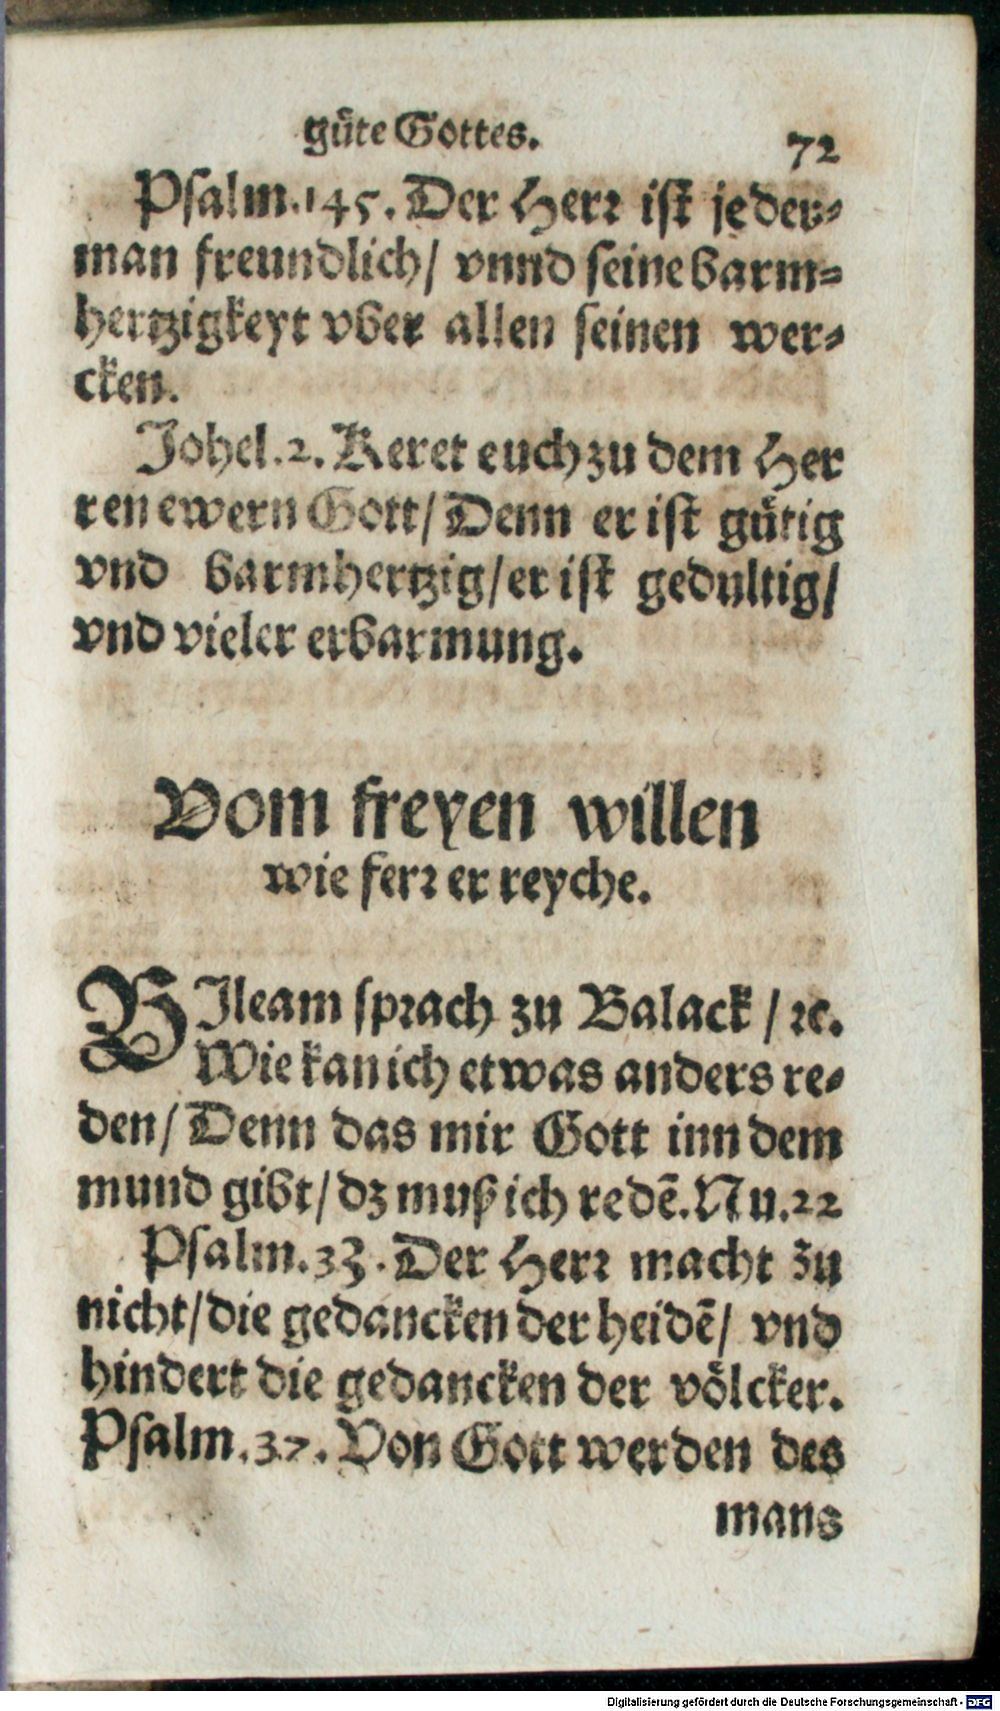 gůte Gottes.
72
Psalm.145. Der Herꝛ ist jeder⸗
man freundlich/ vnnd seine barm⸗
hertzigkeyt vber allen seinen wer⸗
cken.
Johel.2. Keret euch zu dem Her
ren ewern Gott/ Denn er ist gůtig
vnd barmhertzig/ er ist gedultig/
vnd vieler erbarmung.
Vom freyen willen
wie ferꝛ er reyche.
BIleam spꝛach zu Balack / ꝛc.
Wie kan ich etwas anders re⸗
den/ Denn das mir Gott inn dem
mund gibt/ dz muß ich redẽ. Nu.22
Psalm.33. Der Herꝛ macht zu
nicht/ die gedancken der heidẽ/ vnd
hindert die gedancken der vȯlcker.
Psalm.37. Von Gott werden des
mans
Digitalisierung gefördert durch die Deutsche Forschungsgemeinschaft - DFG